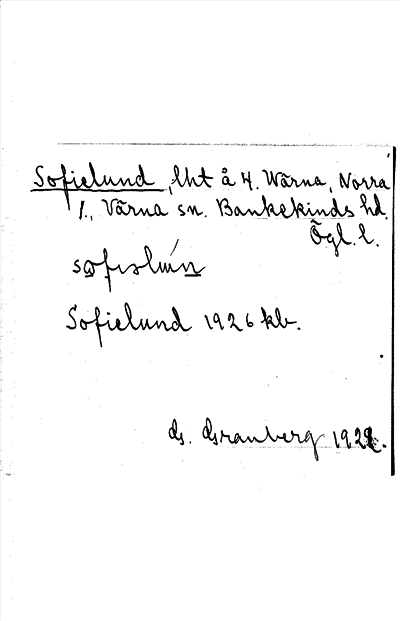 Sofielund, lht å H. Wärna, Norra
1., Värna sn. Bankekinds hd.
Ögl. l.
Sofielund 1926 kb.
G. Granberg